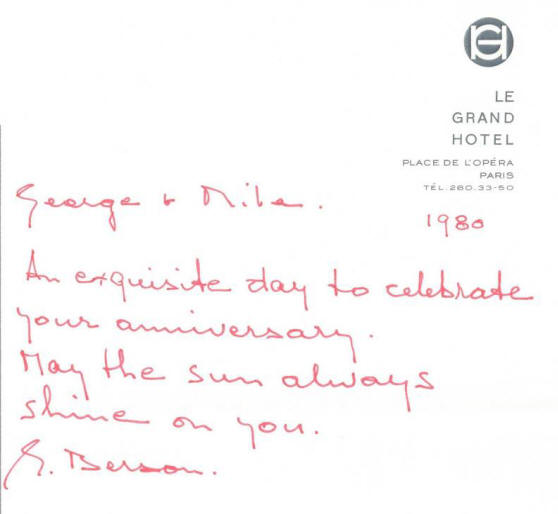 LE
GRAND
HOTEL
PLACE DE L'OPÉRA
PARIS
TÉL. 260.33-50
1980
George &
An exquisite day to celebrate
your anniversary.
May the sun always
shine on you.
Berson.